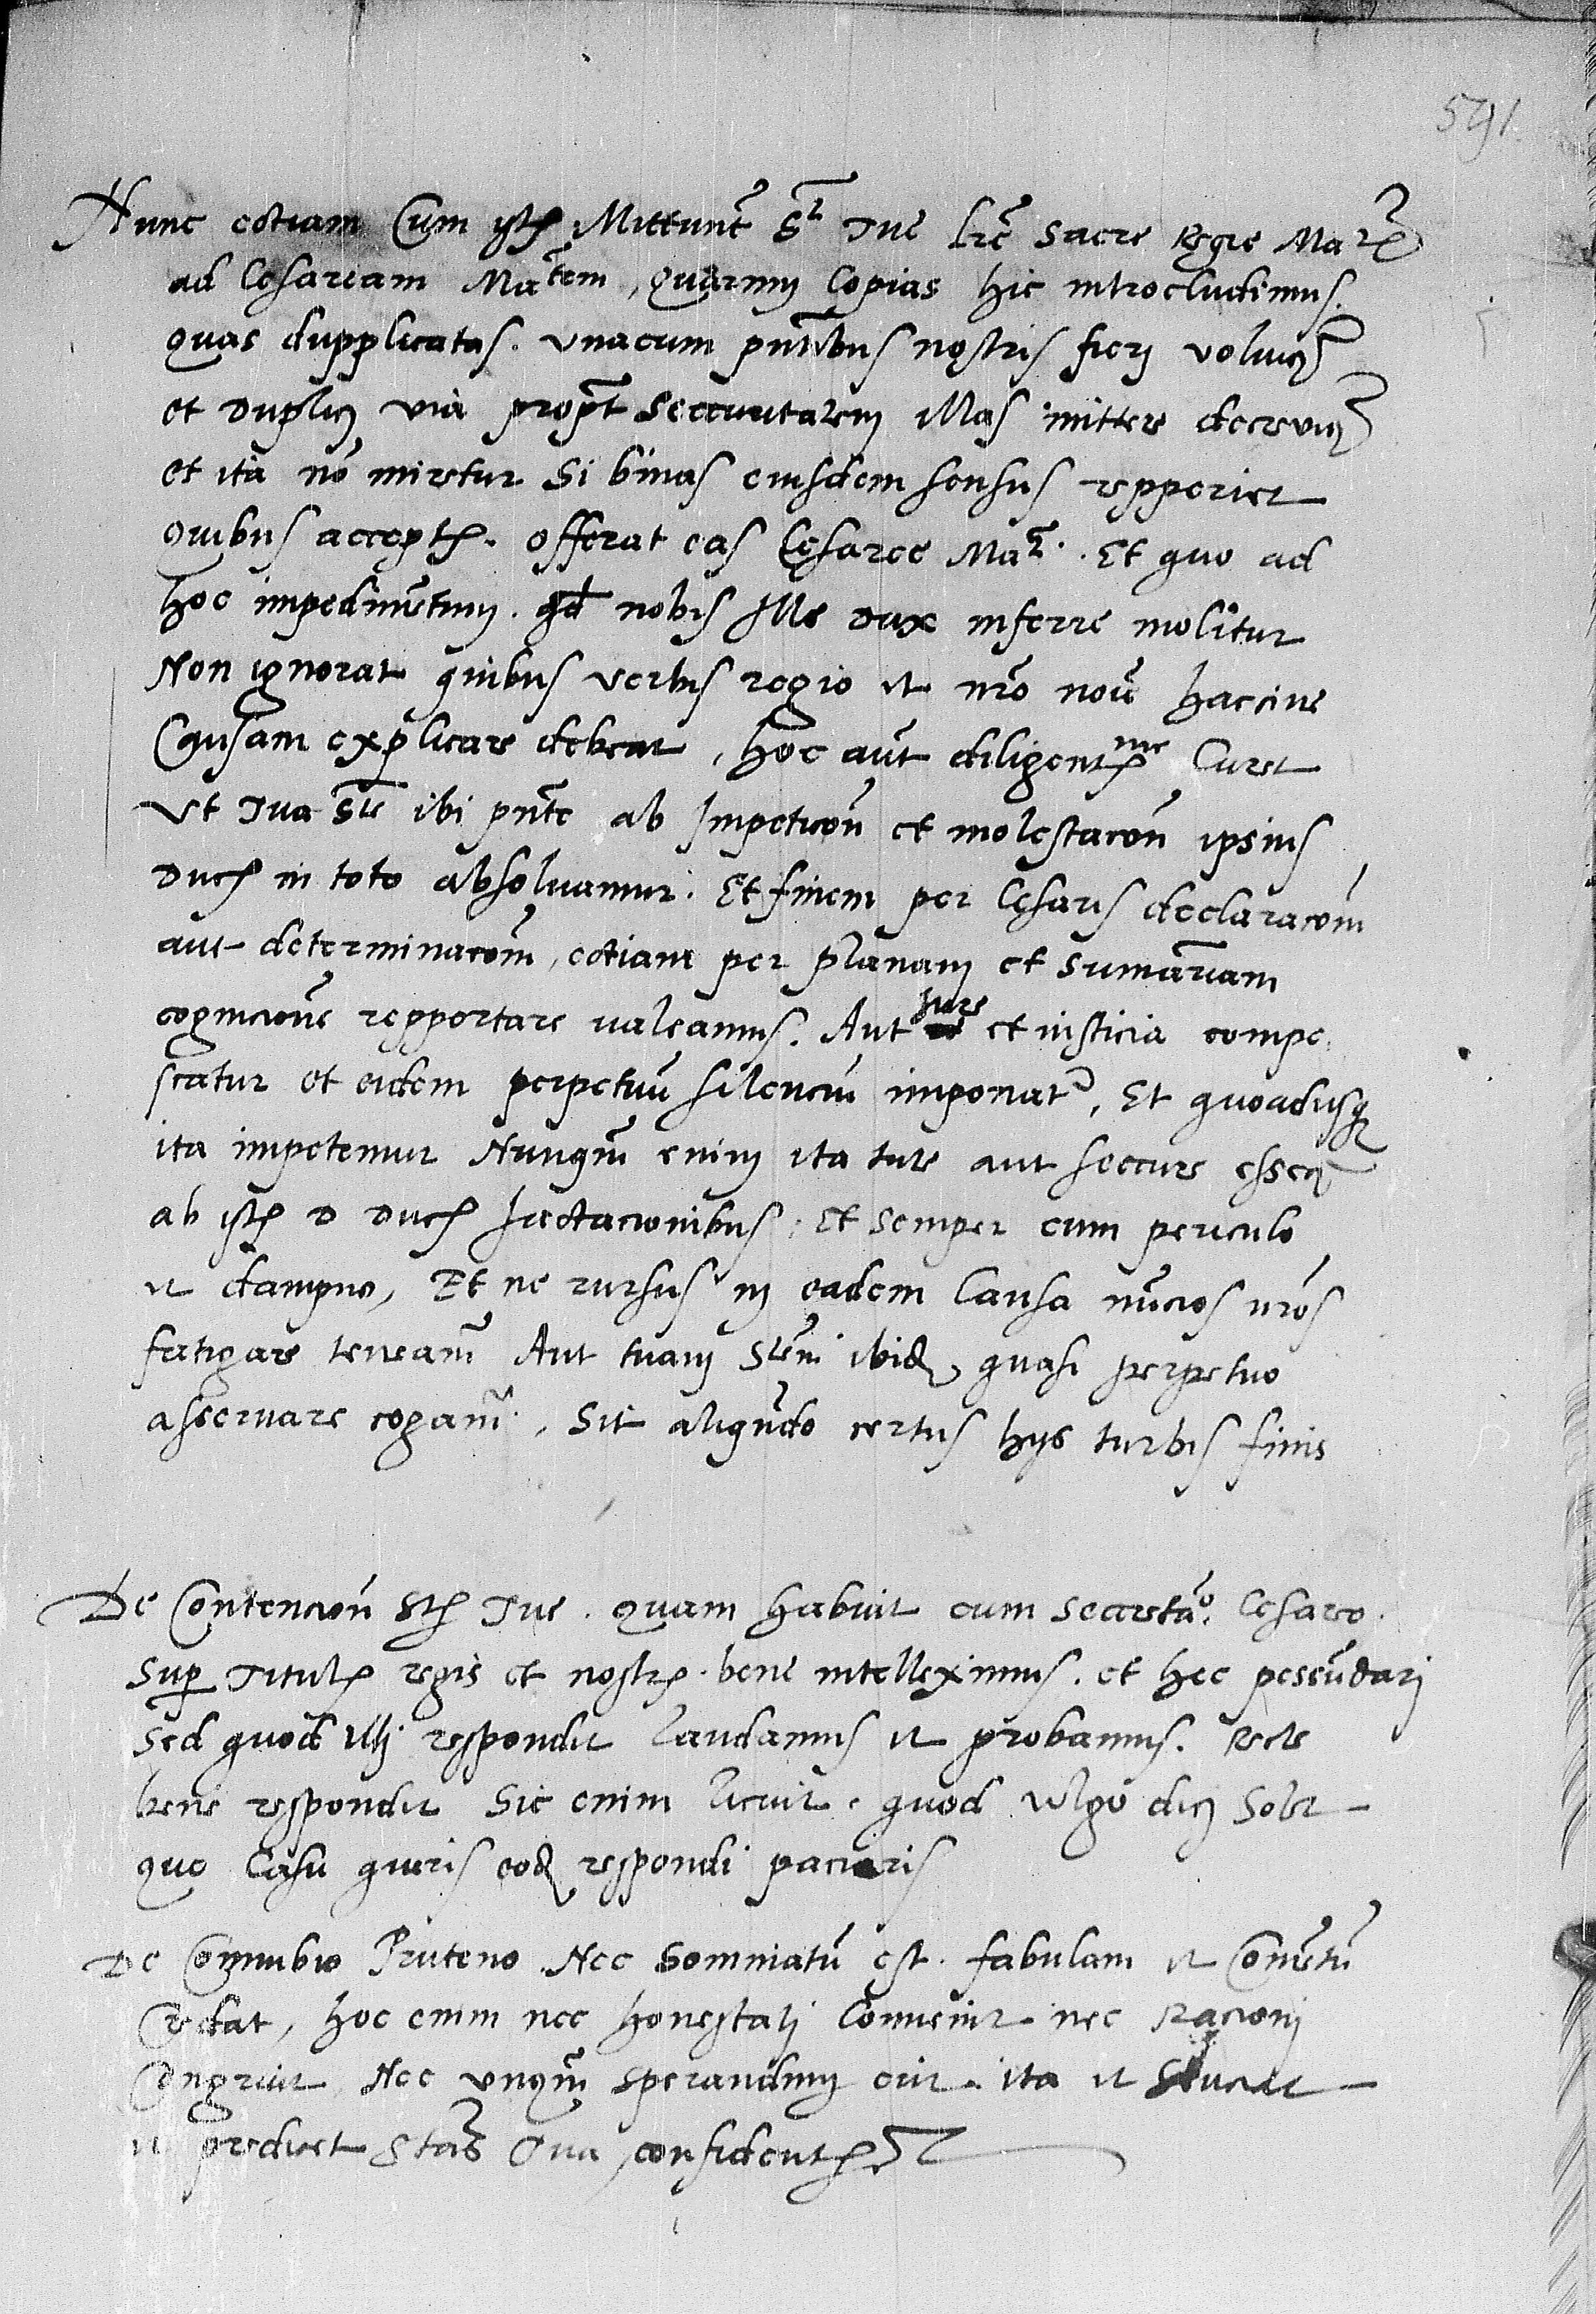 591
Nunc etiam Cum istis Mittunt Sti Tue lre Sacre Regie Matis
ad Cesaream Matem, Quarum Copias hic introcludimus.
quas dupplicatas. vnacum pntibus nostris fieri voluim
et duplici via propt Securitatem illas mittere decrevim
et ita no miretur Si binas eiusdem sensus repperiet
Quibus acceptis. offerat eas Cesaree Mati. Et quo ad
hoc impedimetum. qd nobis Ille Dux inferre molitur
Non ignorat quibus verbis regio et nro noie haccine
Causam explicare debeat, hoc aut diligentme Curet
Vt Tua Ste ibi pnte ab Impeticon et molestacon ipsius
Ducis in toto absoluamur. Et finem per Cesaris declaracom
aut determinacom, etiam per planam et Sumariam
cognicione repportare valeamus. Aut Jure et iusticia compe
scatur et eidem perpetuu silenciu imponatr, Et quoadusq
ita impetemur Nunqm enim ita tute aut secure essem
ab istis D Ducis Iactacionibus, Et semper cum periculo
et dampno, Et ne rursus in eadem Causa nuncios nros
fatigare teneam Aut tuam Stem ibid quasi perpetuo
asservare cogam. Sit aliqundo certus hys turbis finis
De Contencion Stis Tue. Quam habuit cum Secretario Cesareo.
Sup Titulis regis et nostris. bene intelleximus. et hec pessundari
Sed quod illi respondit Laudamus et probamus. Recte
bene respondit Sic enim licuit. quod vulgo dici Solet
quo Casu queris eod respondi pacieris
De Connubio Pruteno Nec Somniatu est. fabulam et Comentu
Credat, hoc enim nec honestati Convenit nec Racioni
Congruit Nec vnqm sperandum erit. ita et
et predicet Stas Tua confidentis